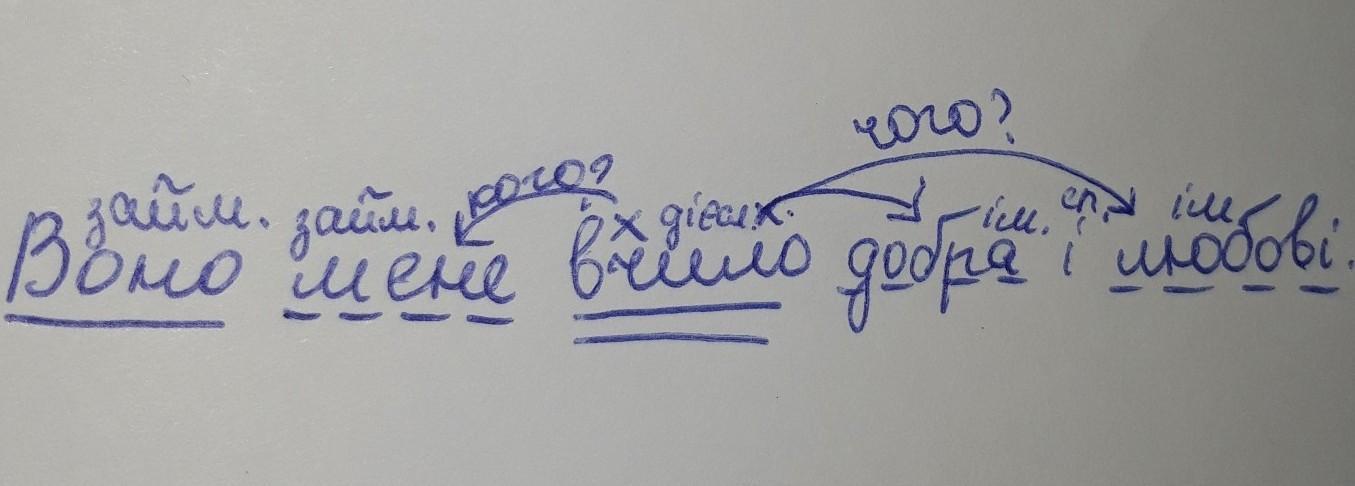 чого?
займ. займ. кого? х дієсл. х ім. сп. ім
Воно мене вчило добра і любові.